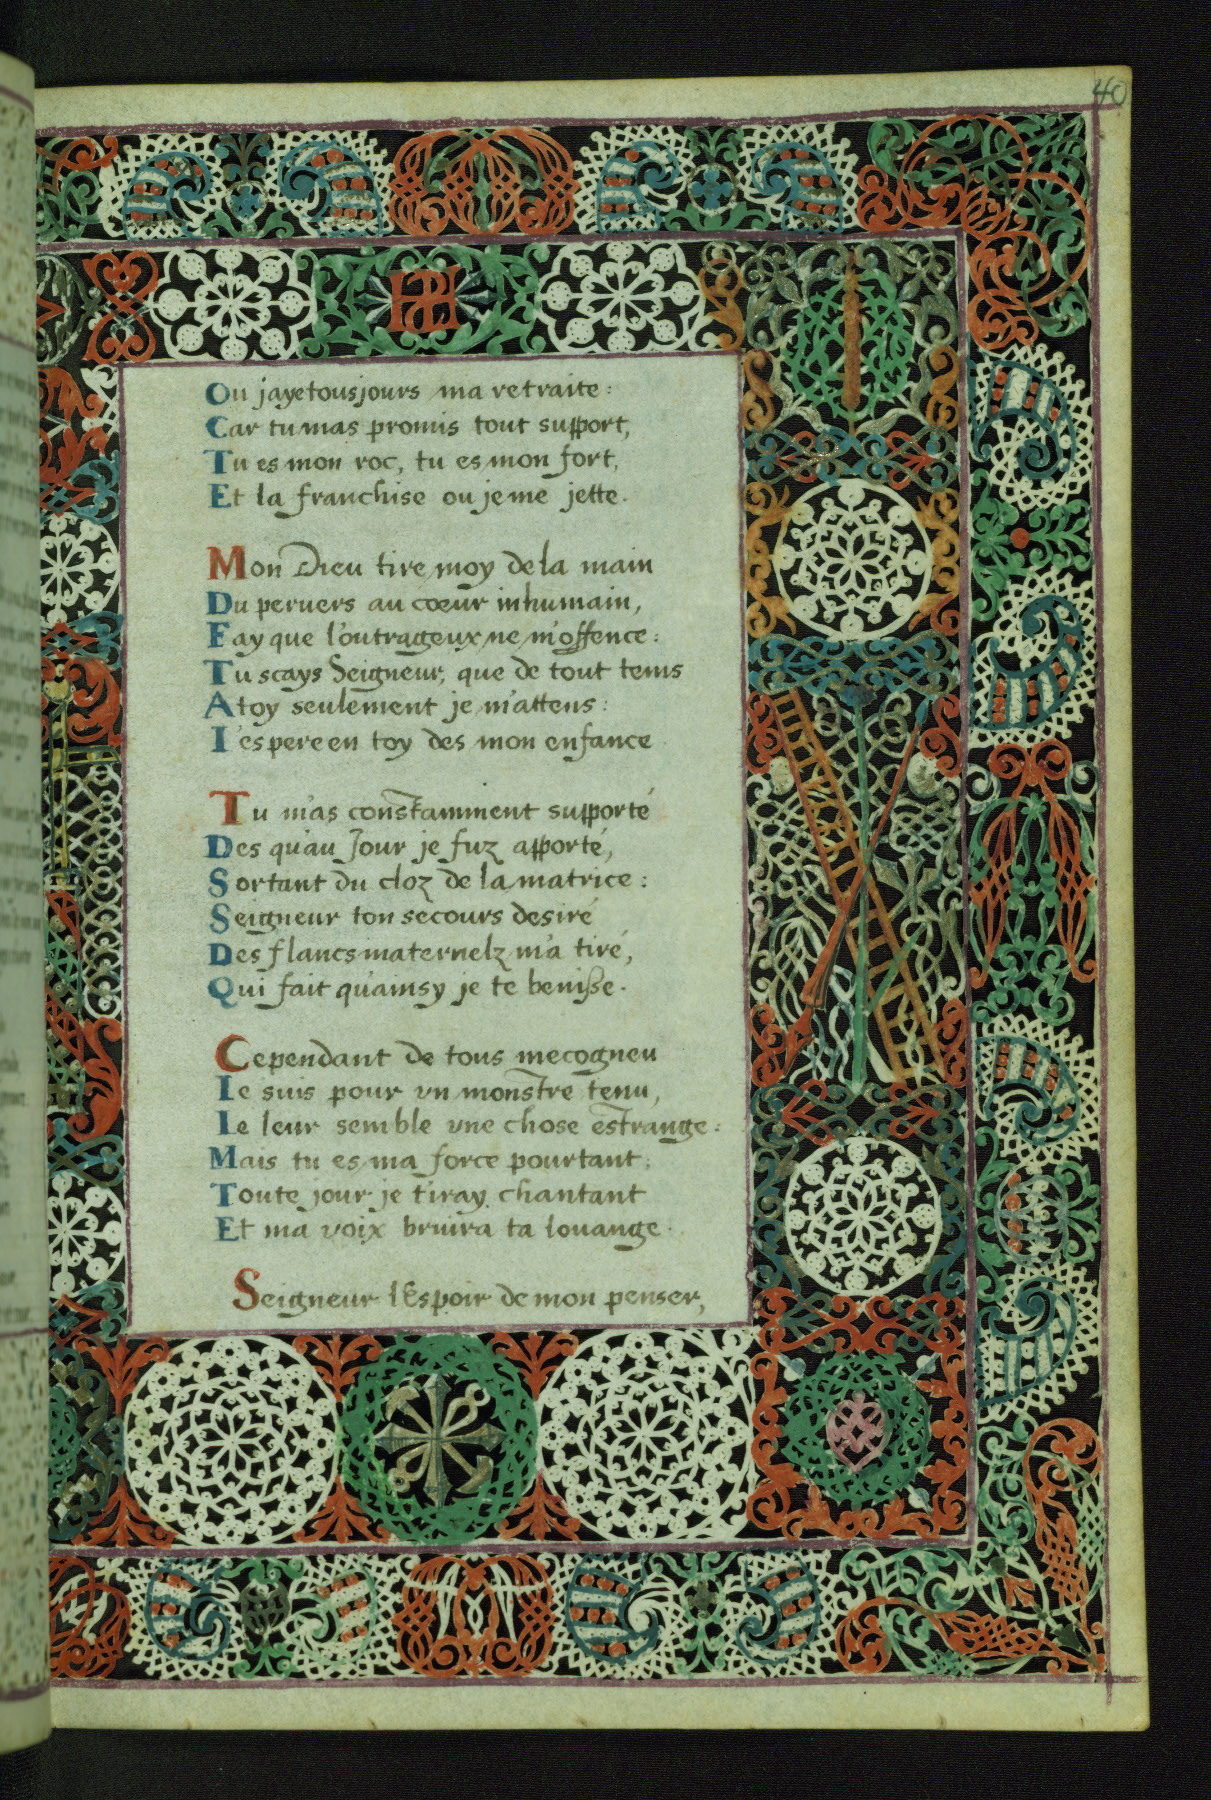 40
Ou jaye tousjours ma retraite:
Car tu mas promis tout support,
Tu es mon roc, tu es mon fort,
Et la franchise ou je me jette.
Mon Dieu tire moy de la main
Du pervers au cœur inhumain,
Fay que l'outrageux ne m'offence:
Tu scays Seigneur, que de tout tems
A toy seulement je m'attens:
I'espere en toy des mon enfance
Tu m'as constamment supporté
Des qu'au Jour je fuz apporté,
Sortant du cloz de la matrice:
Seigneur ton secours desiré
Des flancs maternelz m'a tiré,
Qui fait qu'ainsy je te benisse.
Cependant de tous mecogneu
Ie suis pour vn monstre tenu,
Ie leur semble vne chose estrange:
Mais tu es ma force pourtant;
Toute jour je t'iray chantant
Et ma voix bruira ta louange.
Seigneur l'Espoir de mon penser,